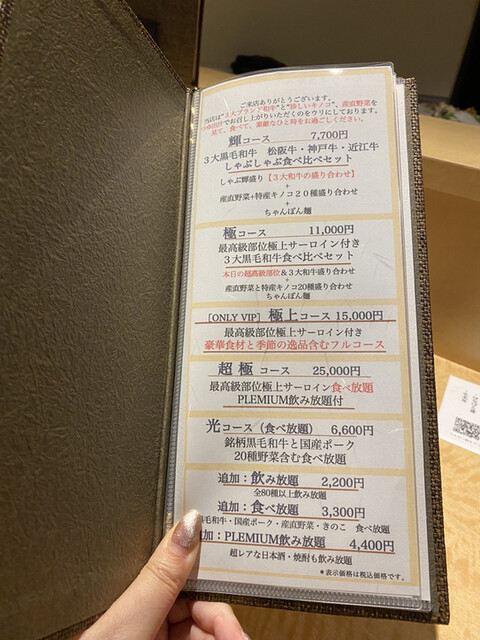 ご来店ありがとうございます。
当店は"３大ブランド和牛"と"珍しいキノコ"、産直野菜を
出汁でお召し上がりいただくのをウリにしております。
見て、食べて、素敵なひと時をお過ごしください。
輝コース 7,700円
３大黒毛和牛 松阪牛・神戸牛・近江牛
しゃぶしゃぶ食べ比べセット
しゃぶ輝盛り【３大和牛の盛り合わせ】
+
産直野菜+特産キノコ２０種盛り合わせ
+
ちゃんぽん麺
極コース 11,000円
最高級部位極上サーロイン付き
３大黒毛和牛食べ比べセット
本日の超高級部位＆３大和牛盛り合わせ
+
産直野菜と特産キノコ20種盛り合わせ
ちゃんぽん麺
[ONLY VIP] 極上コース 15,000円
最高級部位極上サーロイン付き
豪華食材と季節の逸品含むフルコース
超極コース 25,000円
最高級部位極上サーロイン食べ放題
PLEMIUM飲み放題付
光コース（食べ放題） 6,600円
銘柄黒毛和牛と国産ポーク
20種野菜含む食べ放題
追加：飲み放題 2,200円
全80種以上飲み放題
追加：食べ放題 3,300円
毛和牛・国産ポーク・産直野菜・きのこ 食べ放題
加：PLEMIUM飲み放題 4,400円
超レアな日本酒・焼酎も飲み放題
＊表示価格は税込価格です。